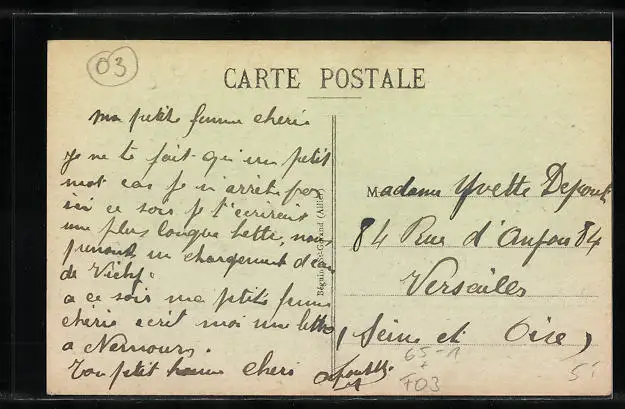 03
CARTE POSTALE
Ma petite femme cherie
Je ne te fait qu'un petit
mot car je m'arrete pas
ici ce soir je t'ecrirait
une plus longue lettre, nous
prenont un chargement d'eau
de Vichy.
a ce soir ma petite femme
cherie ecrit moi une lettre
a Nemours.
Ton petit homme cheri
Béguin-St-Gérand (Allier)
Madame Yvette
84 Rue d'Anjou 84
Versailles
(Seine et Oise)
65-1
+
F03
5i